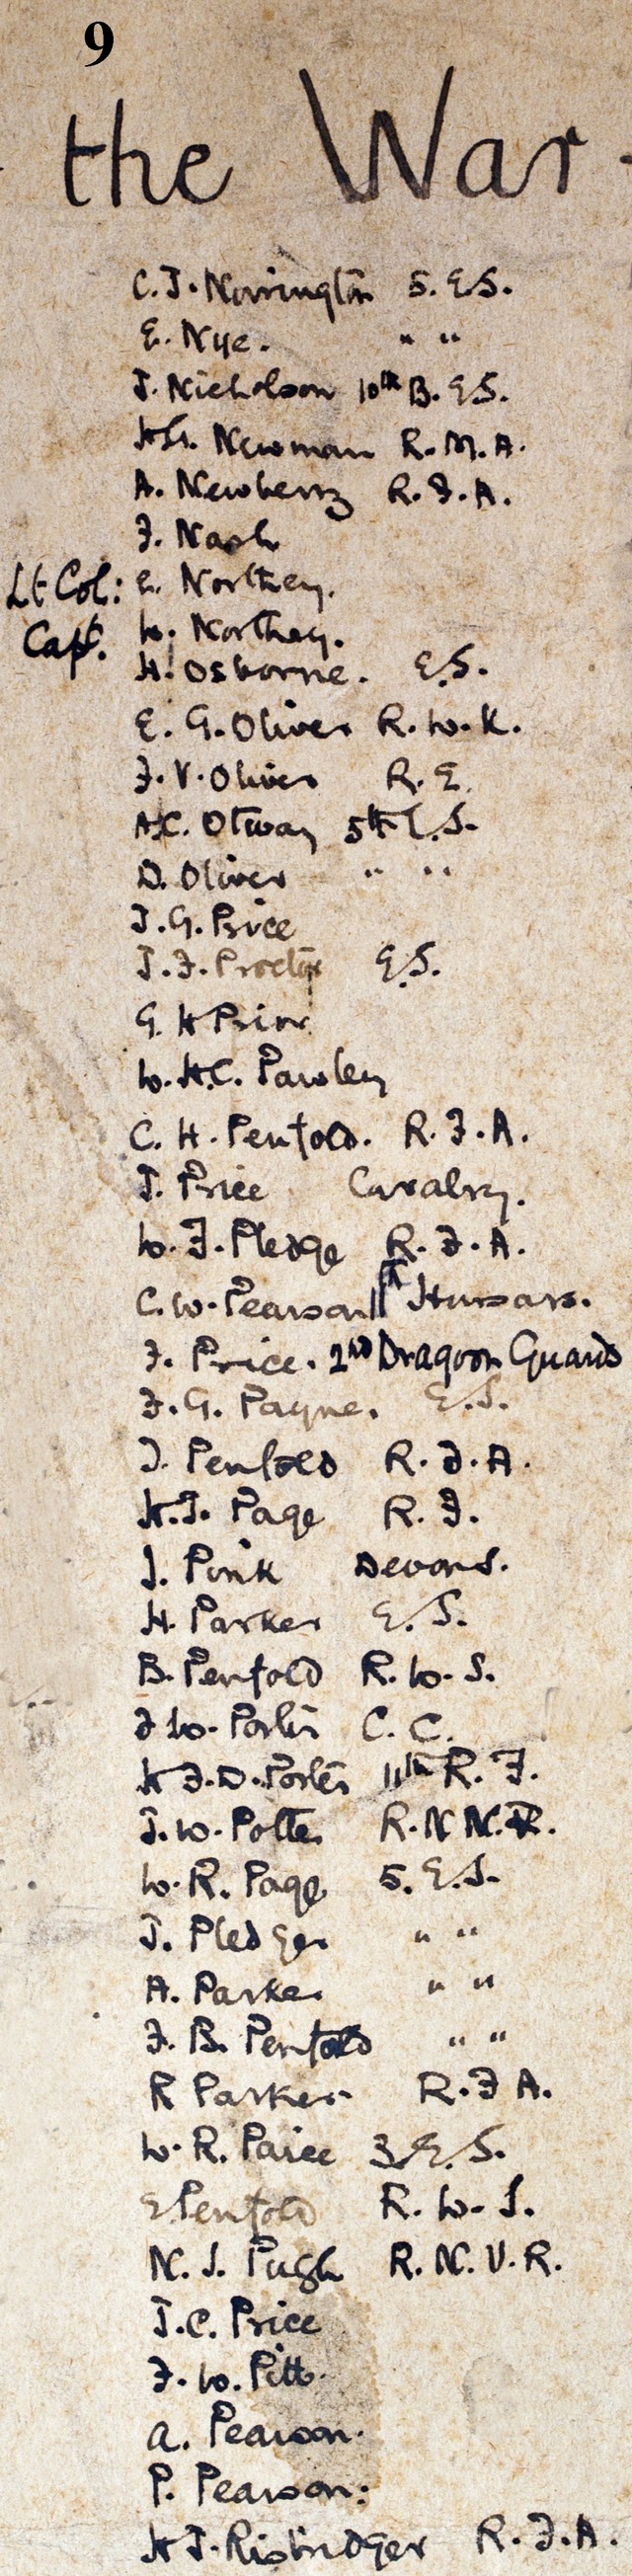 9
the War
C. J. Norrington 5. E.S.
E. Nye. " "
J. Nicholson 10th B. E.S.
H.G. Newman R. M. A.
A. Newberry R. F. A.
F. Nash
Lt Col: E. Northey.
Capt. W. Northey.
H. Osborne. E.S.
E. G. Oliver R. W. K.
F. V. Oliver R. E.
A.C. Otway 5th E.S.
D. Oliver " "
J. G. Price
J. F. Procter E.S.
G. H Prior
W. H.C. Pawley
C. H. Penfold. R. F. A.
J. Price Cavalry.
W. F. Pledge R. F. A.
C. W. Pearson 11th Hussars.
F. Price. 2nd Dragoon Guards
F. G. Payne. E.S.
J. Penfold R. F. A.
H. J. Page R. F.
J. Pink Devons.
H. Parker E. S.
B. Penfold R. W. S.
F W. Porter C. C.
H F. D. Porter 11th R. F.
J. W. Potter R. N N. R.
W. R. Page 5. E.S.
J. Pledger " "
A. Parker " "
F. B. Penfold " "
R Parker R. F A.
W. R. Paice 3 E. S.
E Penfold R. W. S.
N. J. Pugh R. N. V. R.
J. C. Price
F. W. Pitt.
A. Pearson.
P. Pearson.
H J. Risbridger R. F. A.